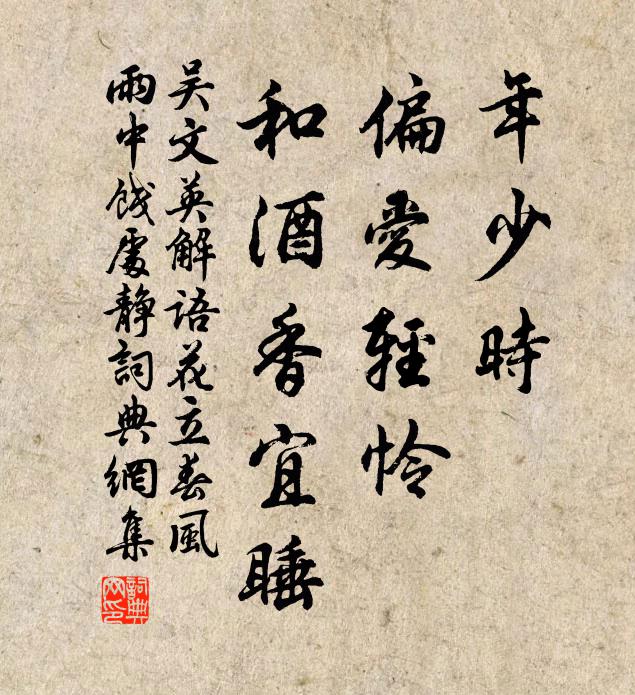 年少時
偏愛輕憐
和酒香宜睡
吴文英解語花立春風
雨中餞處靜詞典網集
詞典
网印